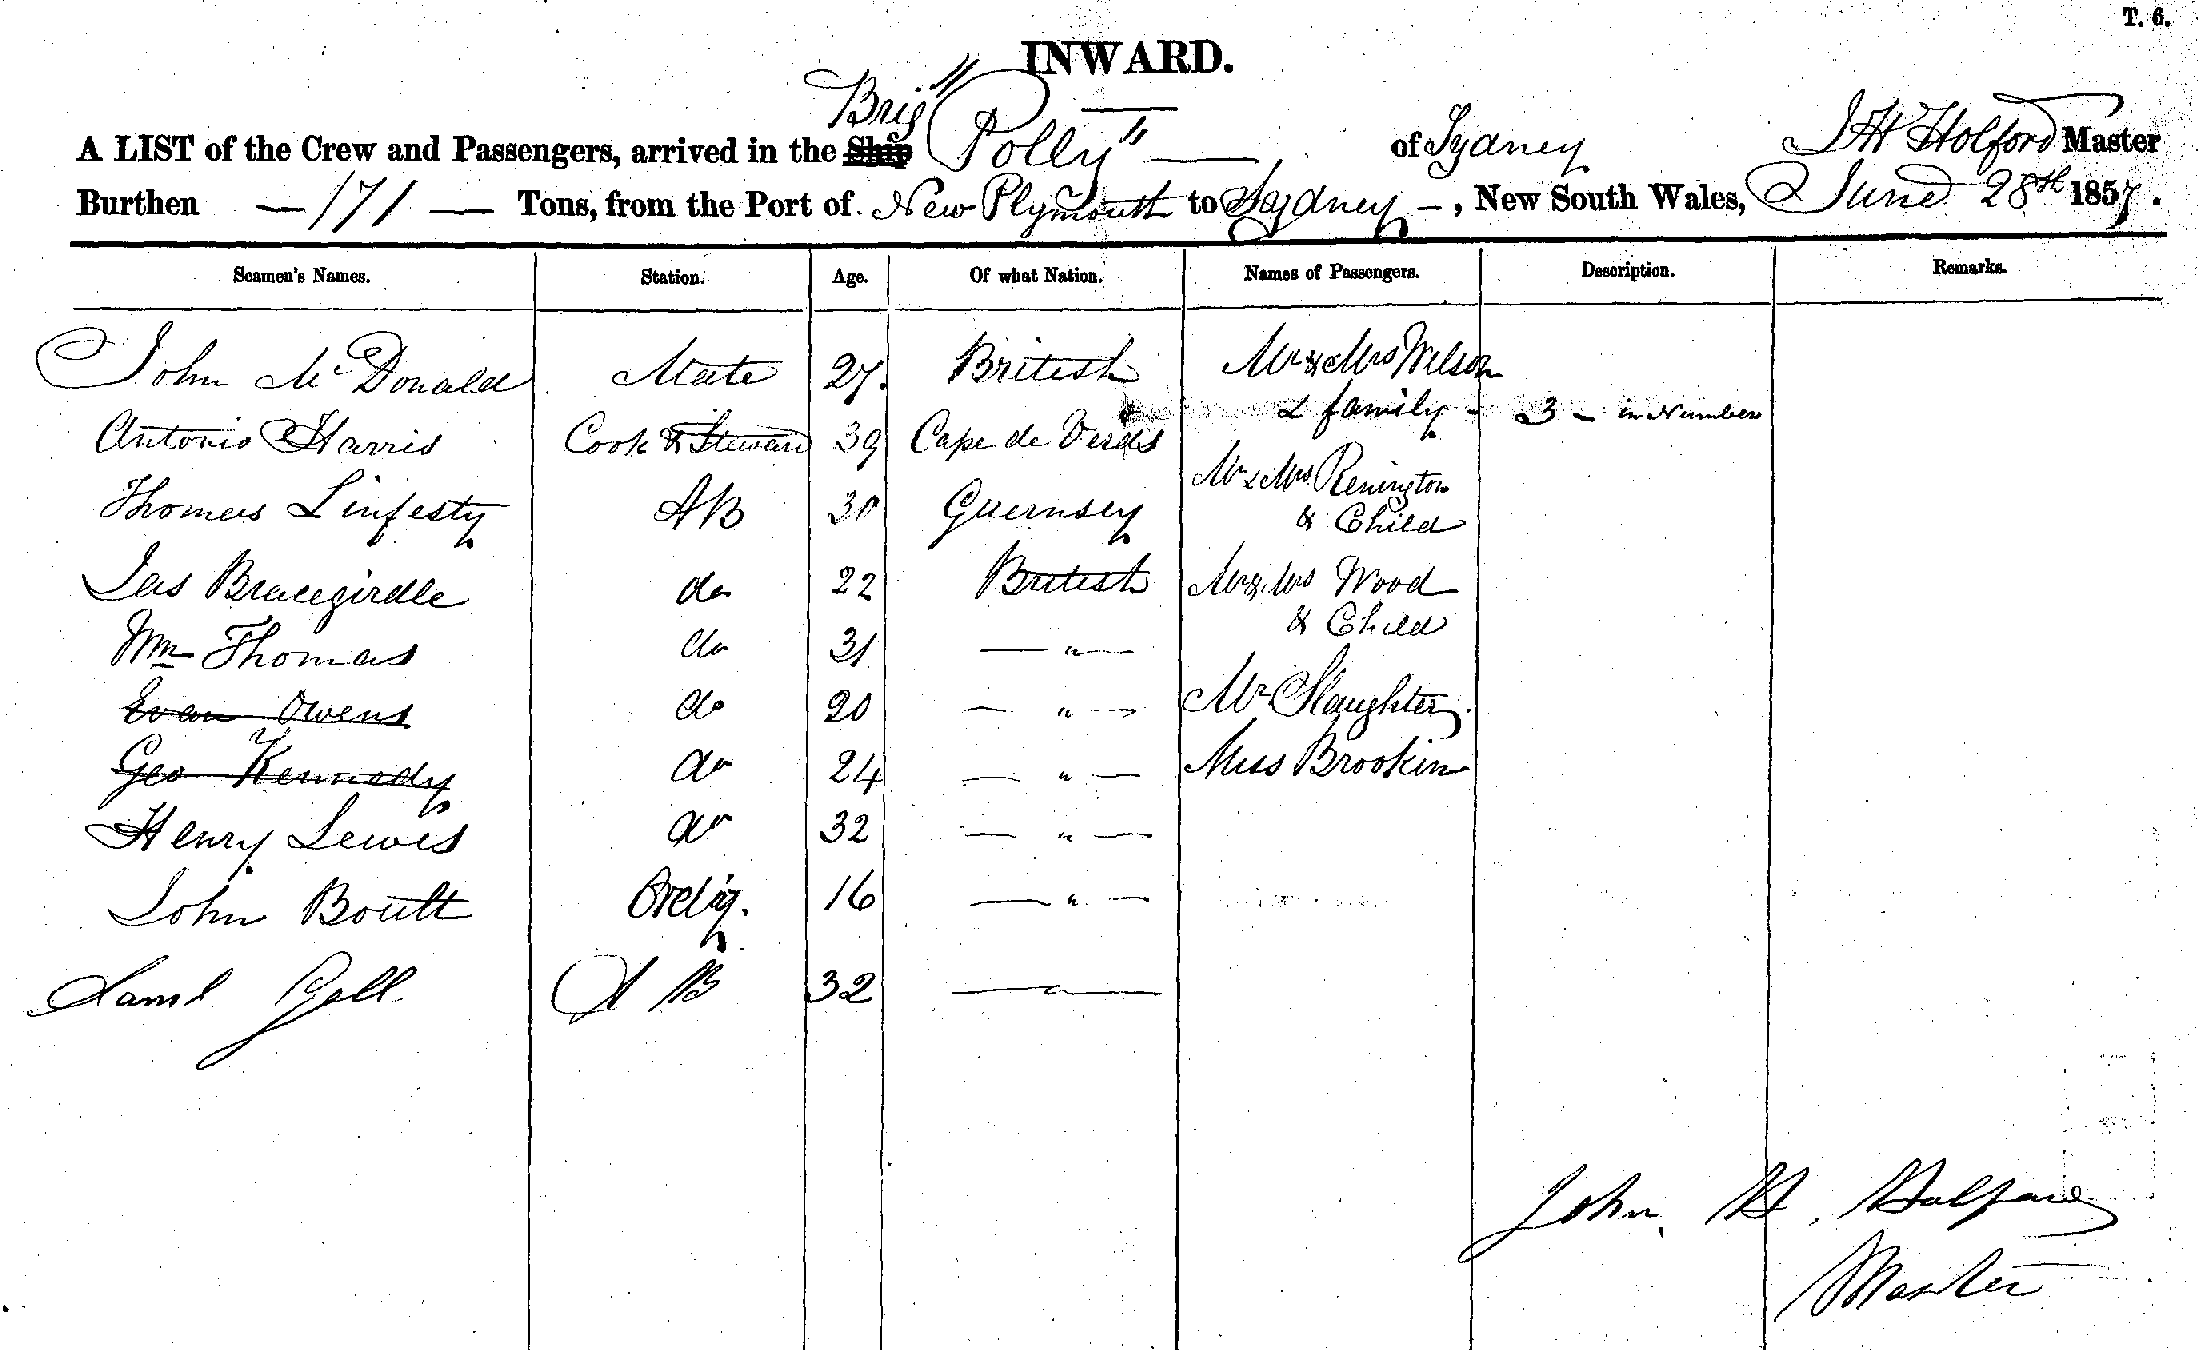 T. 6.
INWARD.
A LIST of the Crew and Passengers, arrived in the Ship Brig "Polly" — of Sydney J H Holford Master
Burthen — 171 — Tons, from the Port of New Plymouth to Sydney —, New South Wales, June 28th 1857.
Seamen's Names. Station. Age. Of what Nation. Names of Passengers. Description. Remarks.
John McDonald Mate 27. British Mr & Mrs Wilson
& family - 3 - in Number
Antonio Harris Cook & Steward 39 Cape de Verds
Mr & Mrs Renington
Thomas Linfesty AB 30 Guernsey & Child
Jas Bracegirdle do 22 British Mr & Mrs Wood
& Child
Wm Thomas do 31 — " —
Evan Owens do 20 — " — Mr Slaughter.
Geo Kennedy do 24 — " — Miss Brookin
Henry Lewis do 32 — " —
John Boult Ordiy. 16 — " —
Saml Gell A B 32 — " —
John H. Holford
Master